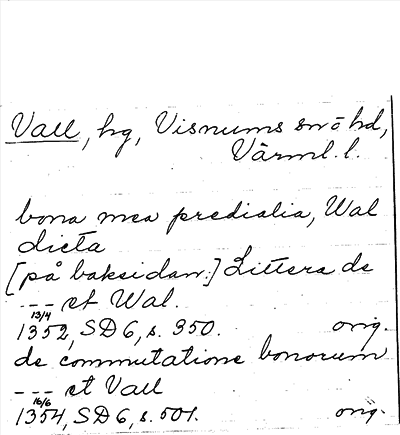 Vall, hg, Visnums sn o hd,
Värml. l.
bona mea predialia, Wal
dicta
[på baksidan:] Littera de
--- et Wal.
13/4
1352, SD 6, s. 350. orig.
de commutatione bonorum
--- et Vall
16/6
1354, SD 6, s. 501. orig.